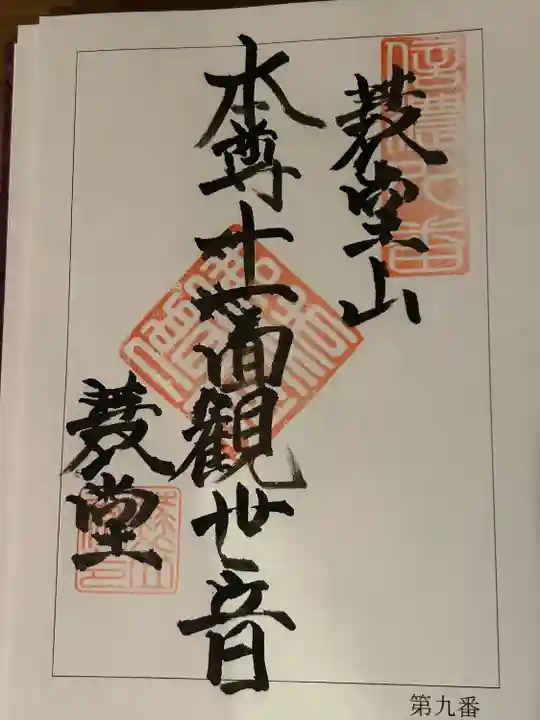 蓑堂山
本尊十一面観世音
蓑堂
第九番